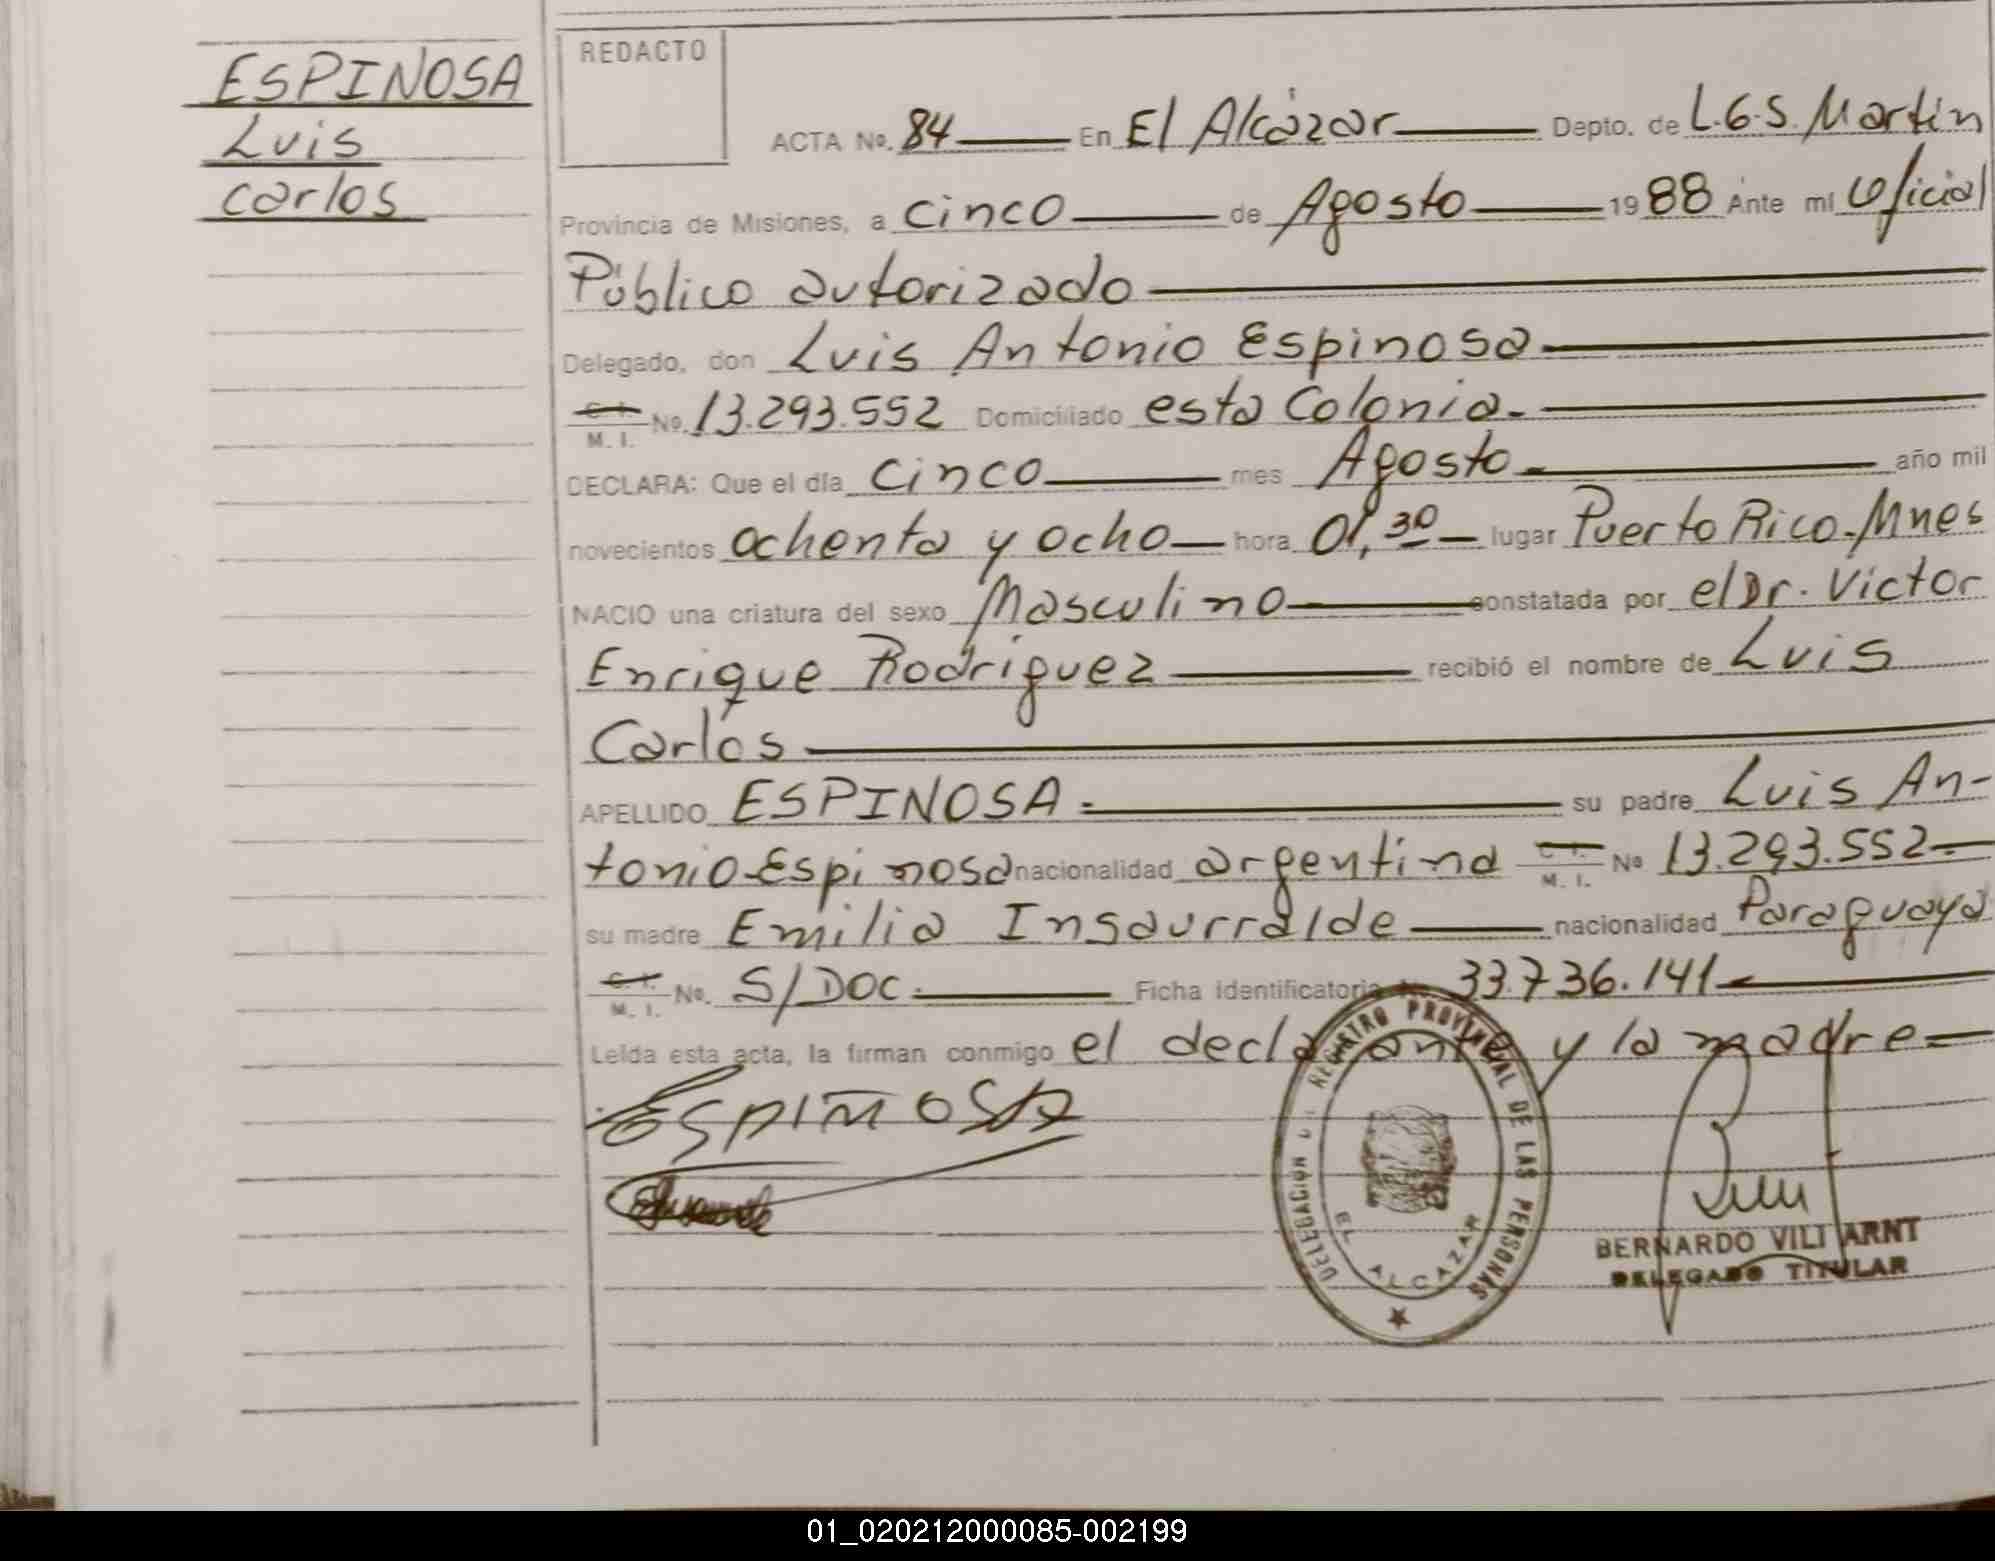 ESPINOSA
Luis
Carlos
REDACTO
ACTA No. 84 En El Alcázar Depto. de L.G.S. Martin
Provincia de Misiones, a cinco de Agosto 1988 Ante mi Oficial
Público autorizado
Delegado, don Luis Antonio Espinosa
C. I. M. I. No. 13.293.552 Domiciliado esta Colonia.
DECLARA: Que el día cinco mes Agosto año mil
novecientos ochenta y ocho hora 01,30 lugar Puerto Rico-Mnes
NACIO una criatura del sexo Masculino constatada por el Dr. Victor
Enrique Rodriguez recibió el nombre de Luis
Carlos
APELLIDO ESPINOSA su padre Luis An-
tonio Espinosa nacionalidad argentina C. I. M. I. No 13.293.552
su madre Emilia Insaurralde nacionalidad Paraguaya
C. I. M. I. No. S/DOC. Ficha identificatoria 33.736.141
Leída esta acta, la firman conmigo el declarante y la madre
ESPINOSA
DELEGACION REGISTRO PROVINCIAL DE LAS PERSONAS
EL ALCAZAR
BERNARDO VILI ARNT
DELEGADO TITULAR
01_020212000085-002199